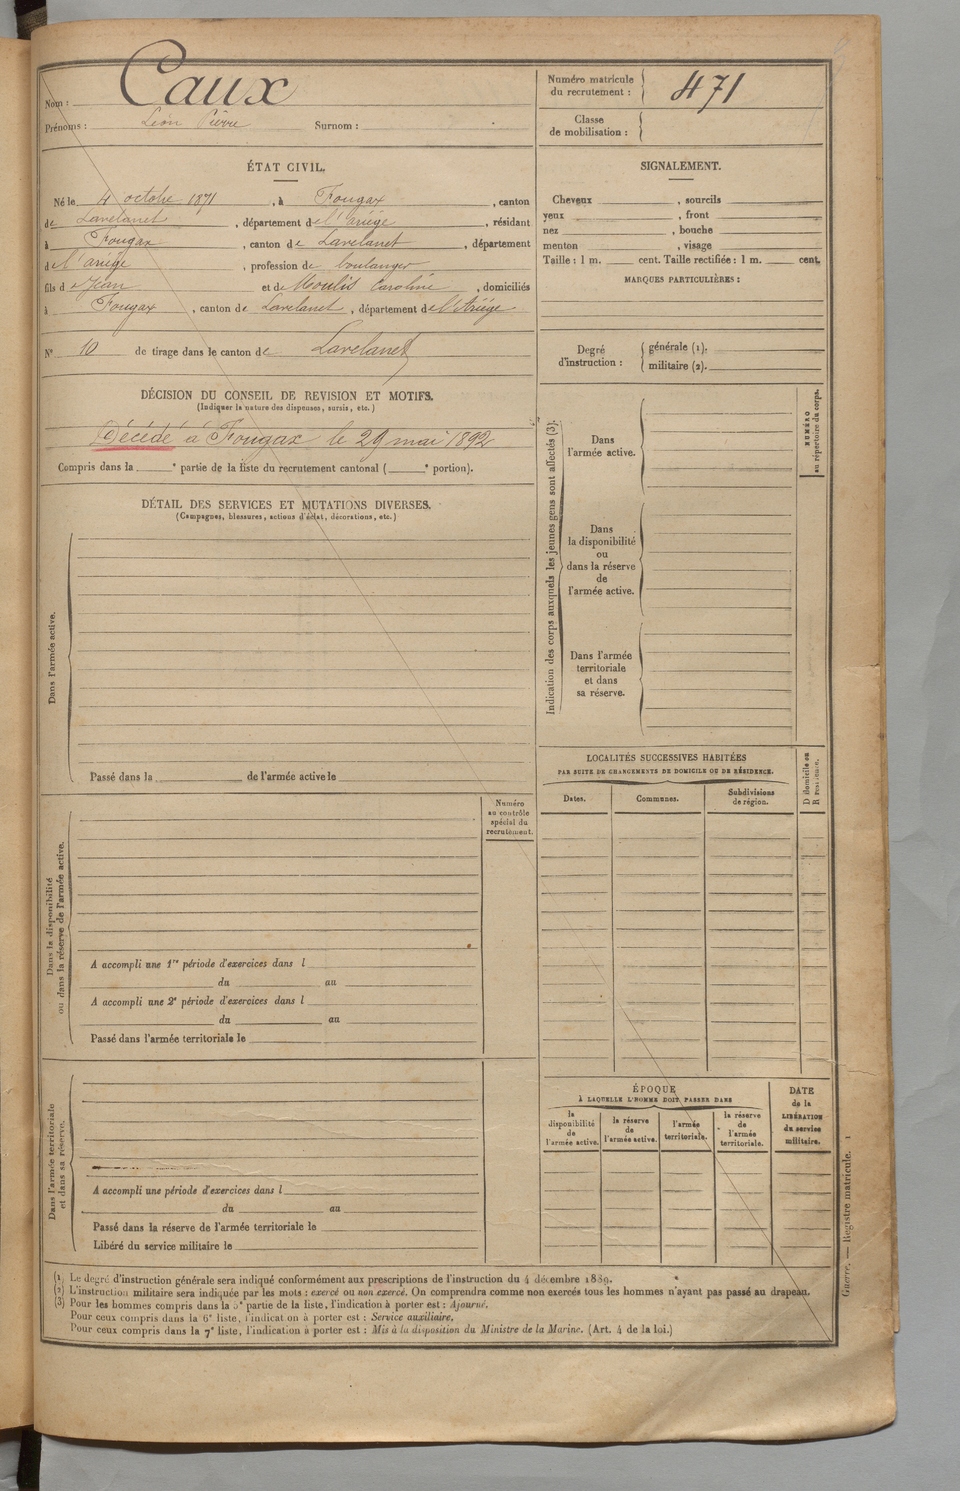 Nom : Caux
Prénoms : Léon Pierre Surnom :
Numéro matricule
du recrutement : 471
Classe
de mobilisation :
ÉTAT CIVIL.
Né le 4 octobre 1871, à Fougax, canton
de Lavelanet, département de l'ariége, résidant
à Fougax, canton de Lavelanet, département
de l'ariége, profession de boulanger
fils de Jean et de Moulis Caroline, domiciliés
à Fougax, canton de Lavelanet, département de l'Ariége
N° 10 de tirage dans le canton de Lavelanet
DÉCISION DU CONSEIL DE REVISION ET MOTIFS.
(Indiquer la nature des dispenses, sursis, etc.)
Décédé à Fougax le 29 mai 1892
Compris dans la ___e partie de la liste du recrutement cantonal (___e portion).
DÉTAIL DES SERVICES ET MUTATIONS DIVERSES.
(Campagnes, blessures, actions d'éclat, décorations, etc.)
Dans l'armée active.
Passé dans la ___ de l'armée active le
Numéro
au contrôle
spécial du
recrutement.
Dans la disponibilité
ou dans la réserve de l'armée active.
A accompli une 1re période d'exercices dans l
du ___ au
A accompli une 2e période d'exercices dans l
du ___ au
Passé dans l'armée territoriale le
Dans l'armée territoriale
et dans sa réserve.
A accompli une période d'exercices dans l
du ___ au
Passé dans la réserve de l'armée territoriale le
Libéré du service militaire le
SIGNALEMENT.
Cheveux , sourcils
yeux , front
nez , bouche
menton , visage
Taille : 1 m. ___ cent. Taille rectifiée : 1 m. ___ cent.
MARQUES PARTICULIÈRES :
Degré
d'instruction :
générale (1).
militaire (2).
Indication des corps auxquels les jeunes gens sont affectés (3).
Dans
l'armée active.
Dans
la disponibilité
ou
dans la réserve
de
l'armée active.
Dans l'armée
territoriale
et dans
sa réserve.
NUMÉRO
au répertoire du corps.
LOCALITÉS SUCCESSIVES HABITÉES
PAR SUITE DE CHANGEMENTS DE DOMICILE OU DE RÉSIDENCE.
Dates.
Communes.
Subdivisions
de région.
D domicile ou
R résidence.
ÉPOQUE
À LAQUELLE L'HOMME DOIT PASSER DANS
la
disponibilité
de
l'armée active.
la réserve
de
l'armée active.
l'armée
territoriale.
la réserve
de
l'armée
territoriale.
DATE
de la
LIBÉRATION
du service
militaire.
(1) Le degré d'instruction générale sera indiqué conformément aux prescriptions de l'instruction du 4 décembre 1889.
(2) L'instruction militaire sera indiquée par les mots : exercé ou non exercé. On comprendra comme non exercés tous les hommes n'ayant pas passé au drapeau.
(3) Pour les hommes compris dans la 5e partie de la liste, l'indication à porter est : Ajourné.
Pour ceux compris dans la 6e liste, l'indication à porter est : Service auxiliaire.
Pour ceux compris dans la 7e liste, l'indication à porter est : Mis à la disposition du Ministre de la Marine. (Art. 4 de la loi.)
Guerre. — Registre matricule. 1